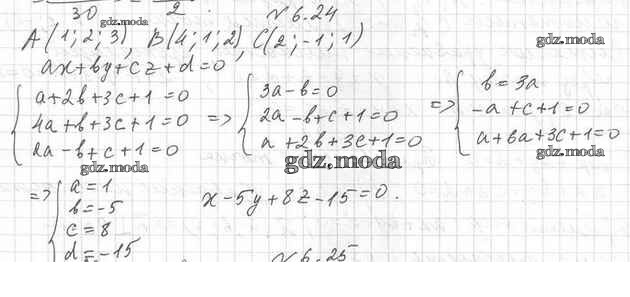 30 2 N 6.24
gdz.moda
A(1; 2; 3), B(4; 1; 2), C(2; -1; 1)
gdz.moda
ax+by+cz+d=0
a+2b+3c+1=0
4a+b+3c+1=0
2a-b+c+1=0
=>
3a-b=0
2a-b+c+1=0
a+2b+3c+1=0
=>
b=3a
-a+c+1=0
a+6a+3c+1=0
gdz.moda
gdz.moda
gdz.moda
=>
a=1
b=-5
c=8
d=-15
x-5y+8z-15=0.
N 6.25